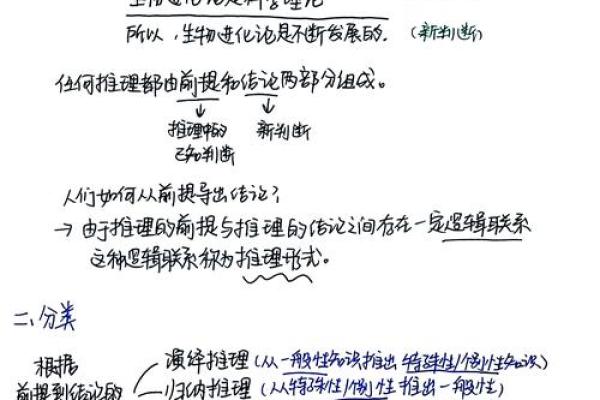 生物进化论是科学理论
所以，生物进化论是不断发展的. (新判断)
任何推理都由前提和结论两部分组成。
↓ ↓
推理中的 新判断
已知判断
人们如何从前提导出结论？
→ 由于推理的前提与推理的结论之间存在一定逻辑联系
这种逻辑联系称为推理形式。
二、分类
根据 演绎推理 (从一般性知识推出 特殊性/个别性知识)
前提到结论的 归纳推理 (从特殊性/个别性 推出一般性)